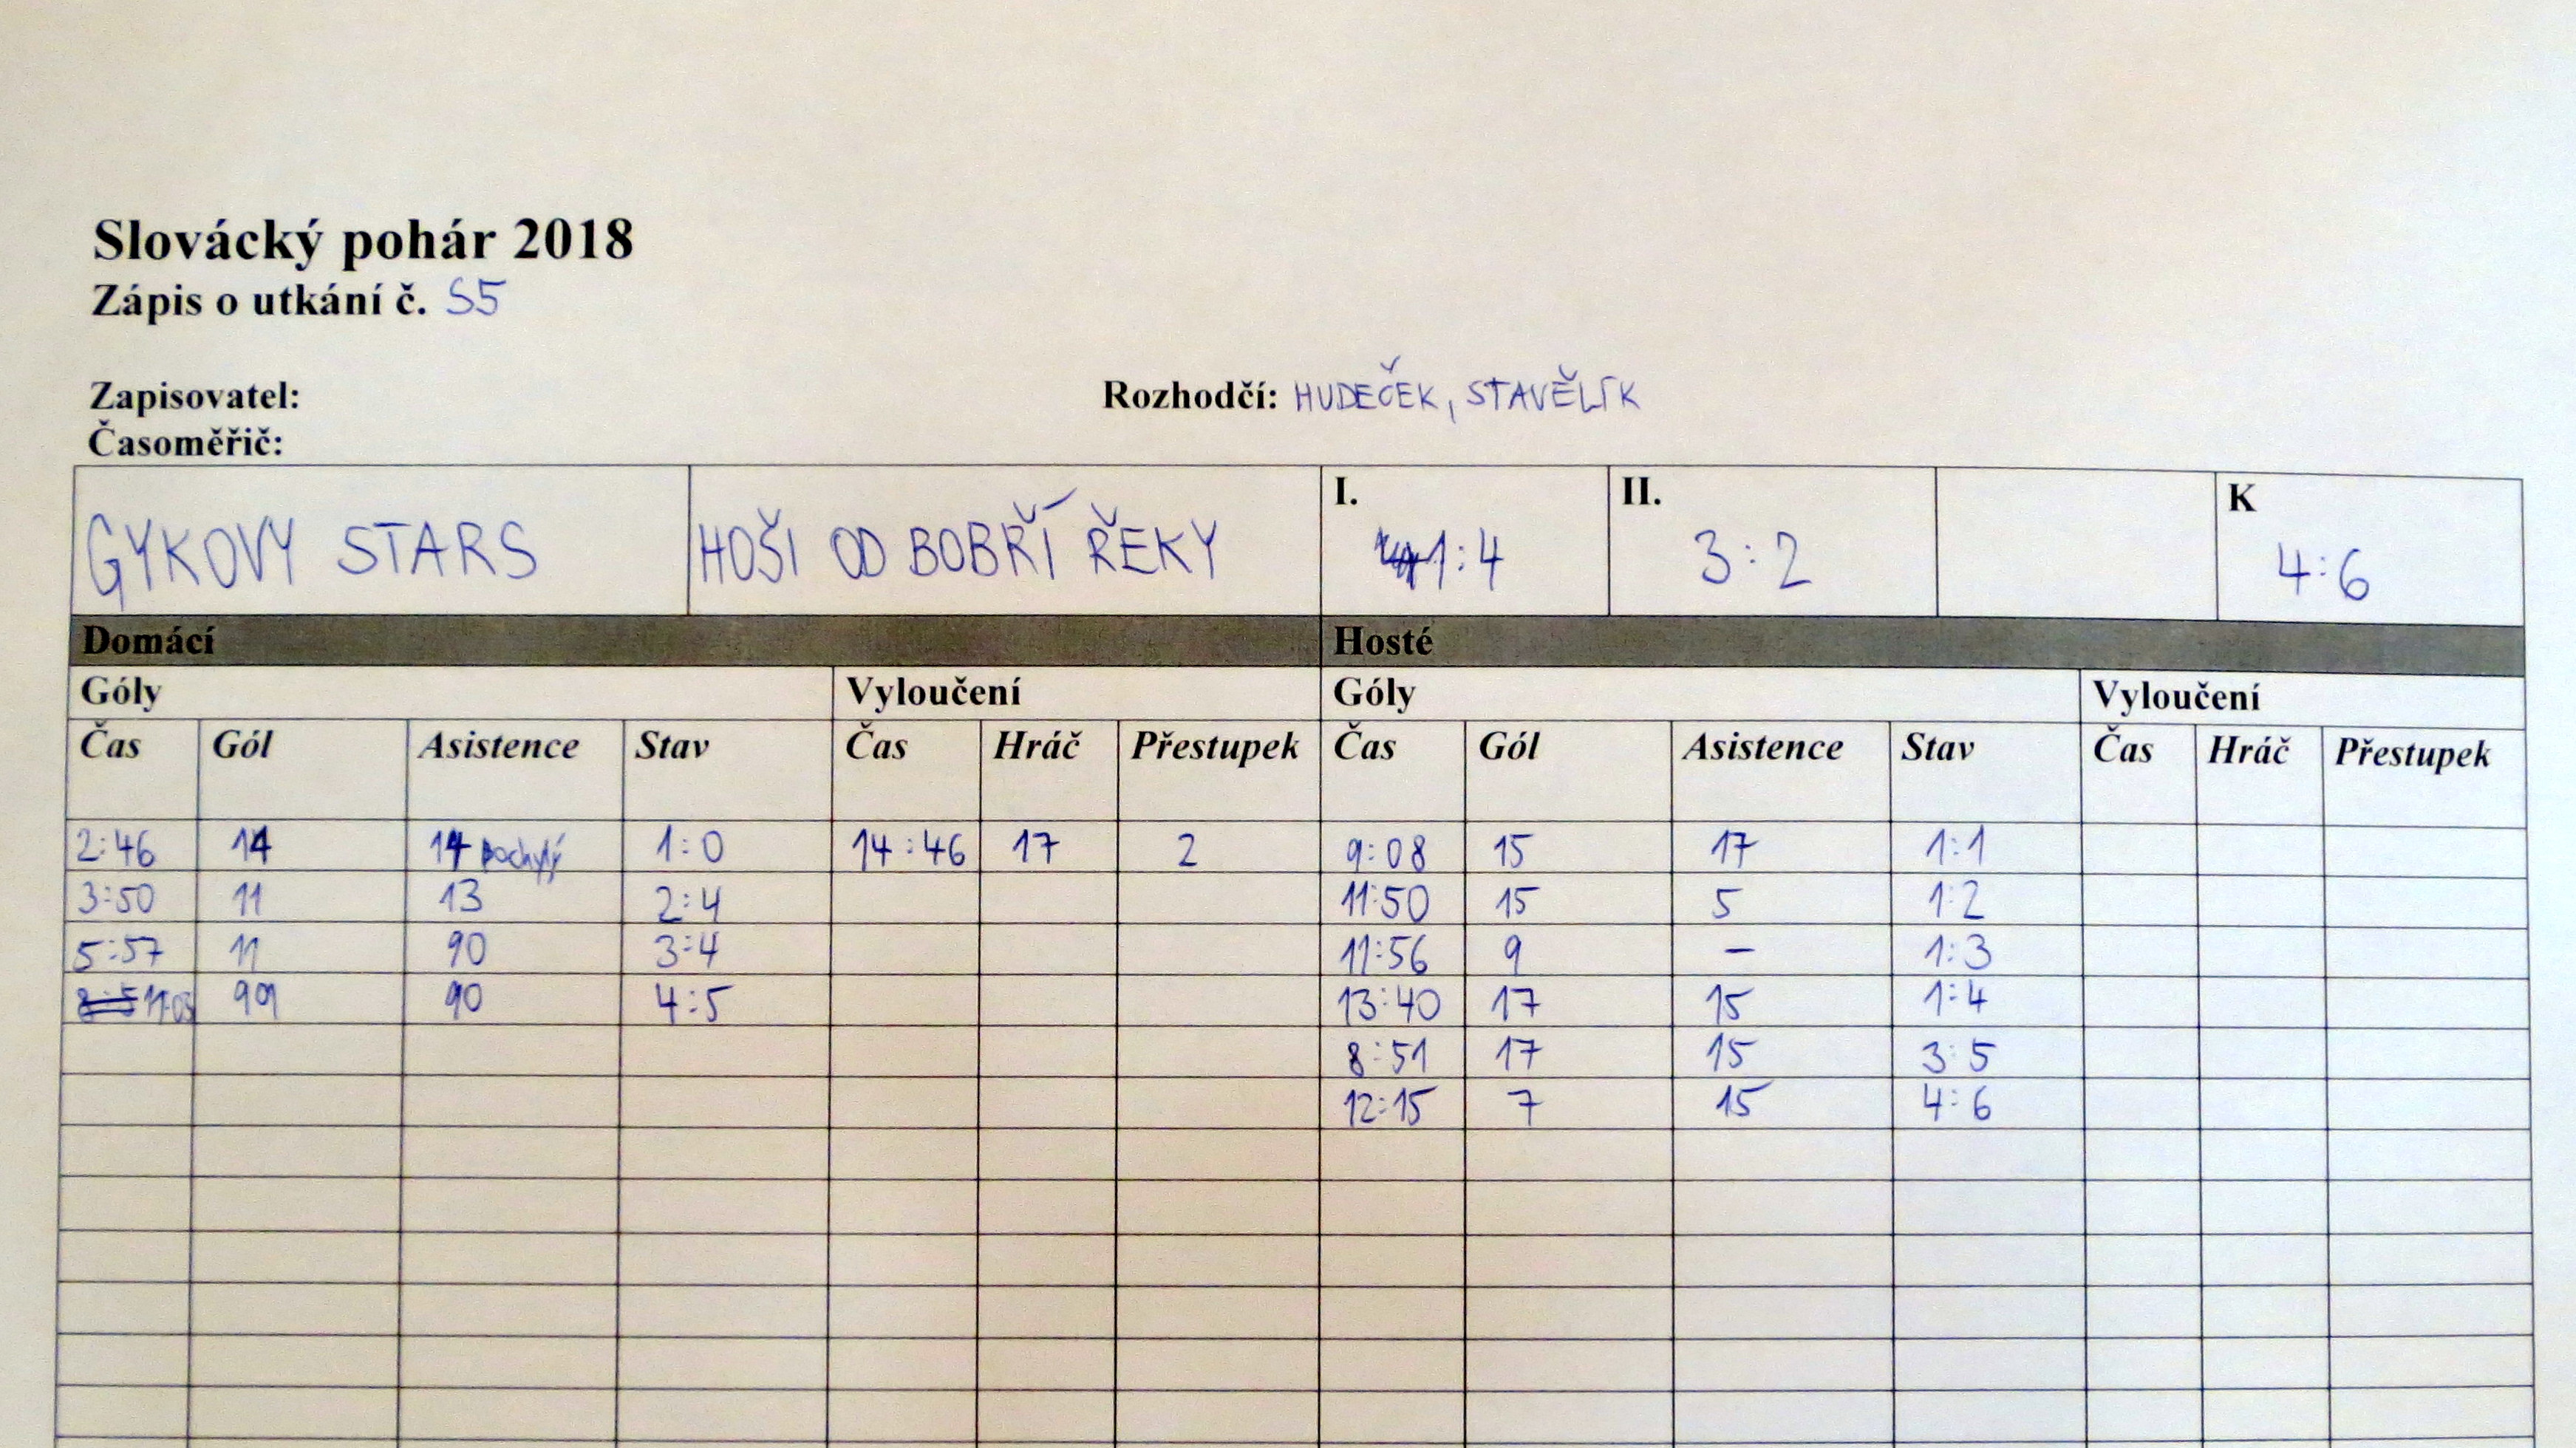 Slovácký pohár 2018
Zápis o utkání č. S5
Zapisovatel: Rozhodčí: HUDEČEK, STAVĚLÍK
Časoměřič:
GYKOVY STARS HOŠI OD BOBŘÍ ŘEKY I. 1:4 II. 3:2 K 4:6
Domácí Hosté
Góly Vyloučení Góly Vyloučení
Čas Gól Asistence Stav Čas Hráč Přestupek Čas Gól Asistence Stav Čas Hráč Přestupek
2:46 14 14 pochylý 1:0 14:46 17 2 9:08 15 17 1:1
3:50 11 13 2:4 11:50 15 5 1:2
5:57 11 90 3:4 11:56 9 – 1:3
11:03 99 90 4:5 13:40 17 15 1:4
8:51 17 15 3:5
12:15 7 15 4:6